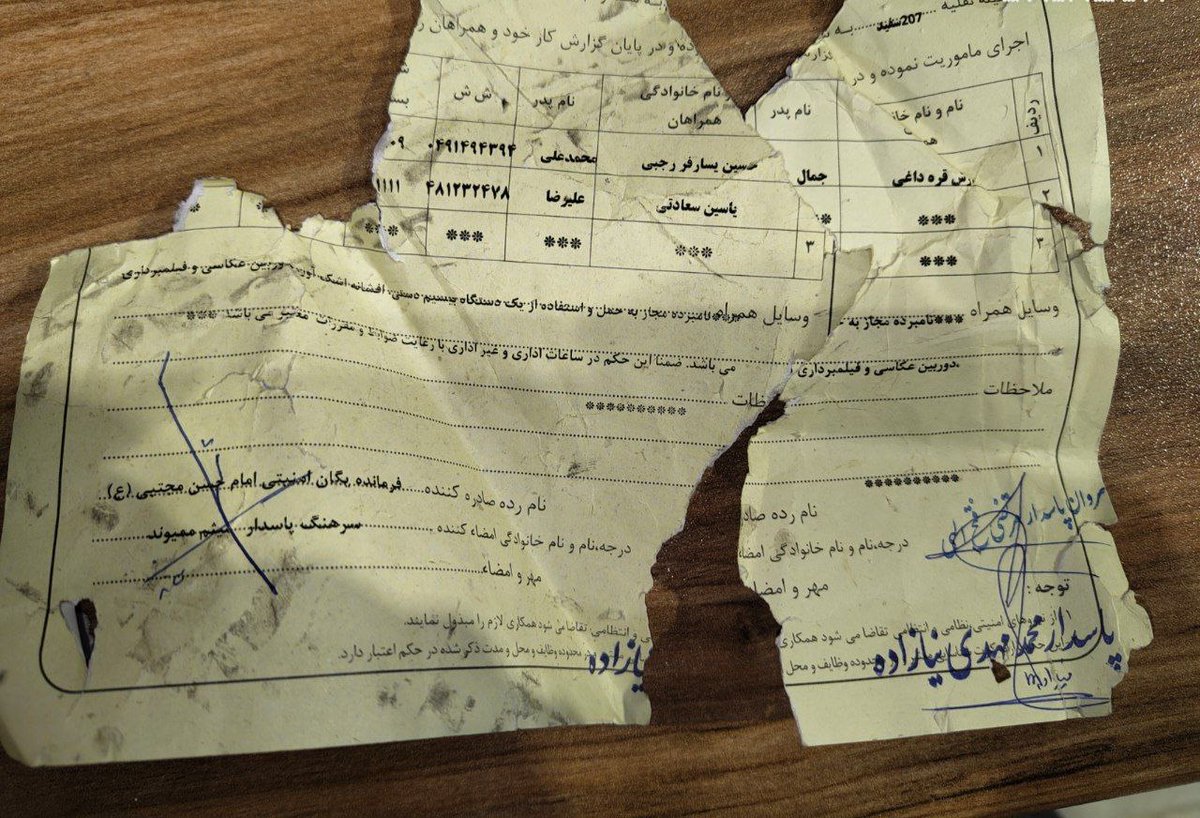 207سفید
به
اجرای ماموریت نموده و در
و در پایان گزارش کار خود و همراهان
ردیف
نام و نام
نام پدر
۱
قره داغی
جمال
۲
***
۳
***
نام خانوادگی همراهان
نام پدر
ش ش
حسین یسارفر رجبی
محمدعلی
۰۴۹۱۴۹۴۳۹۴
۰۹
یاسین سعادتی
علیرضا
۴۸۱۲۳۲۴۷۸
۱۱۱۱
۳
***
***
***
***
وسایل همراه ***نامبرده مجاز به
دوربین عکاسی و فیلمبرداری
ملاحظات
**********
نام رده
درجه،نام و نام خانوادگی
مهر و
توجه :
امنیتی،نظامی و انتظامی تقاضا می شود همکاری
محدوده وظایف و محل
پاسدار محمد مهدی نیازاده
وسایل همراه ***نامبرده مجاز به حمل و استفاده از یک دستگاه بیسیم دستی، افشانه اشک آور، دوربین عکاسی و فیلمبرداری
می باشد. ضمنا این حکم در ساعات اداری و غیر اداری با رعایت ضوابط و مقررات معتبر می باشد ***
**********
نام رده صادره کننده فرمانده یگان امنیتی امام حسن مجتبی (ع)
درجه،نام و نام خانوادگی امضاء کننده سرهنگ پاسدار میثم ممیوند
مهر و امضاء
و انتظامی تقاضا می شود همکاری لازم را مبذول نمایند.
محدوده وظایف و محل و مدت ذکر شده در حکم اعتبار دارد.
نیازاده